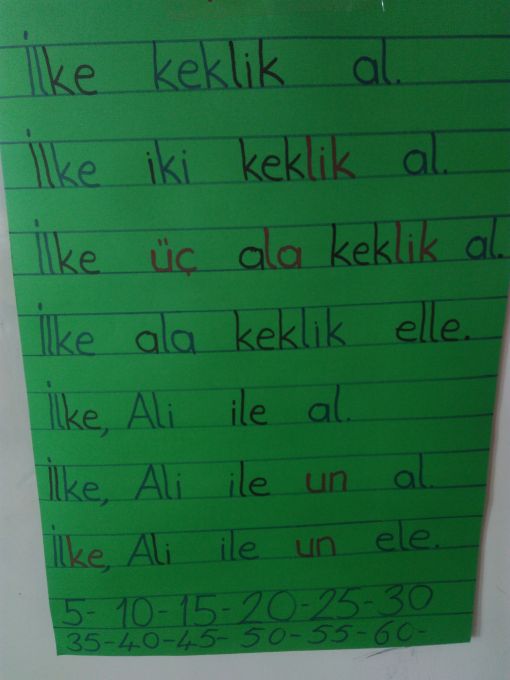 İlke keklik al.
İlke iki keklik al.
İlke üç ala keklik al.
İlke ala keklik elle.
İlke, Ali ile al.
İlke, Ali ile un al.
İlke, Ali ile un ele.
5-10-15-20-25-30
35-40-45-50-55-60-